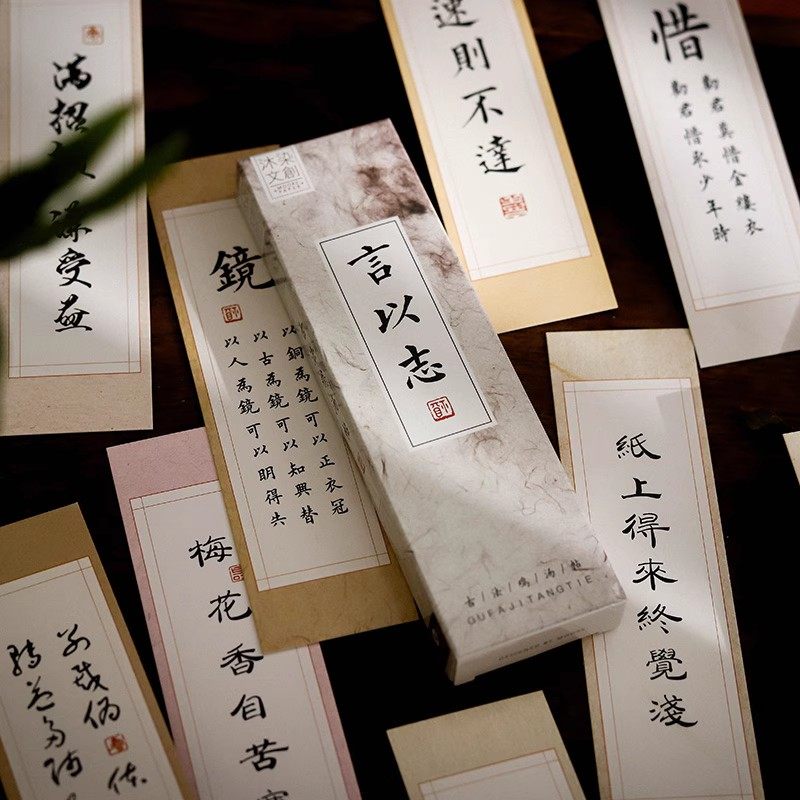 滿招
謙受益
速則不達
惜
勸君莫惜金縷衣
勸君惜取少年時
鏡
以銅為鏡可以正衣冠
以古為鏡可以知興替
以人為鏡可以明得失
沐染
文創
言以志
GUFAJITANGTIE
DESIGNED BY
紙上得來終覺淺
梅花香自苦寒